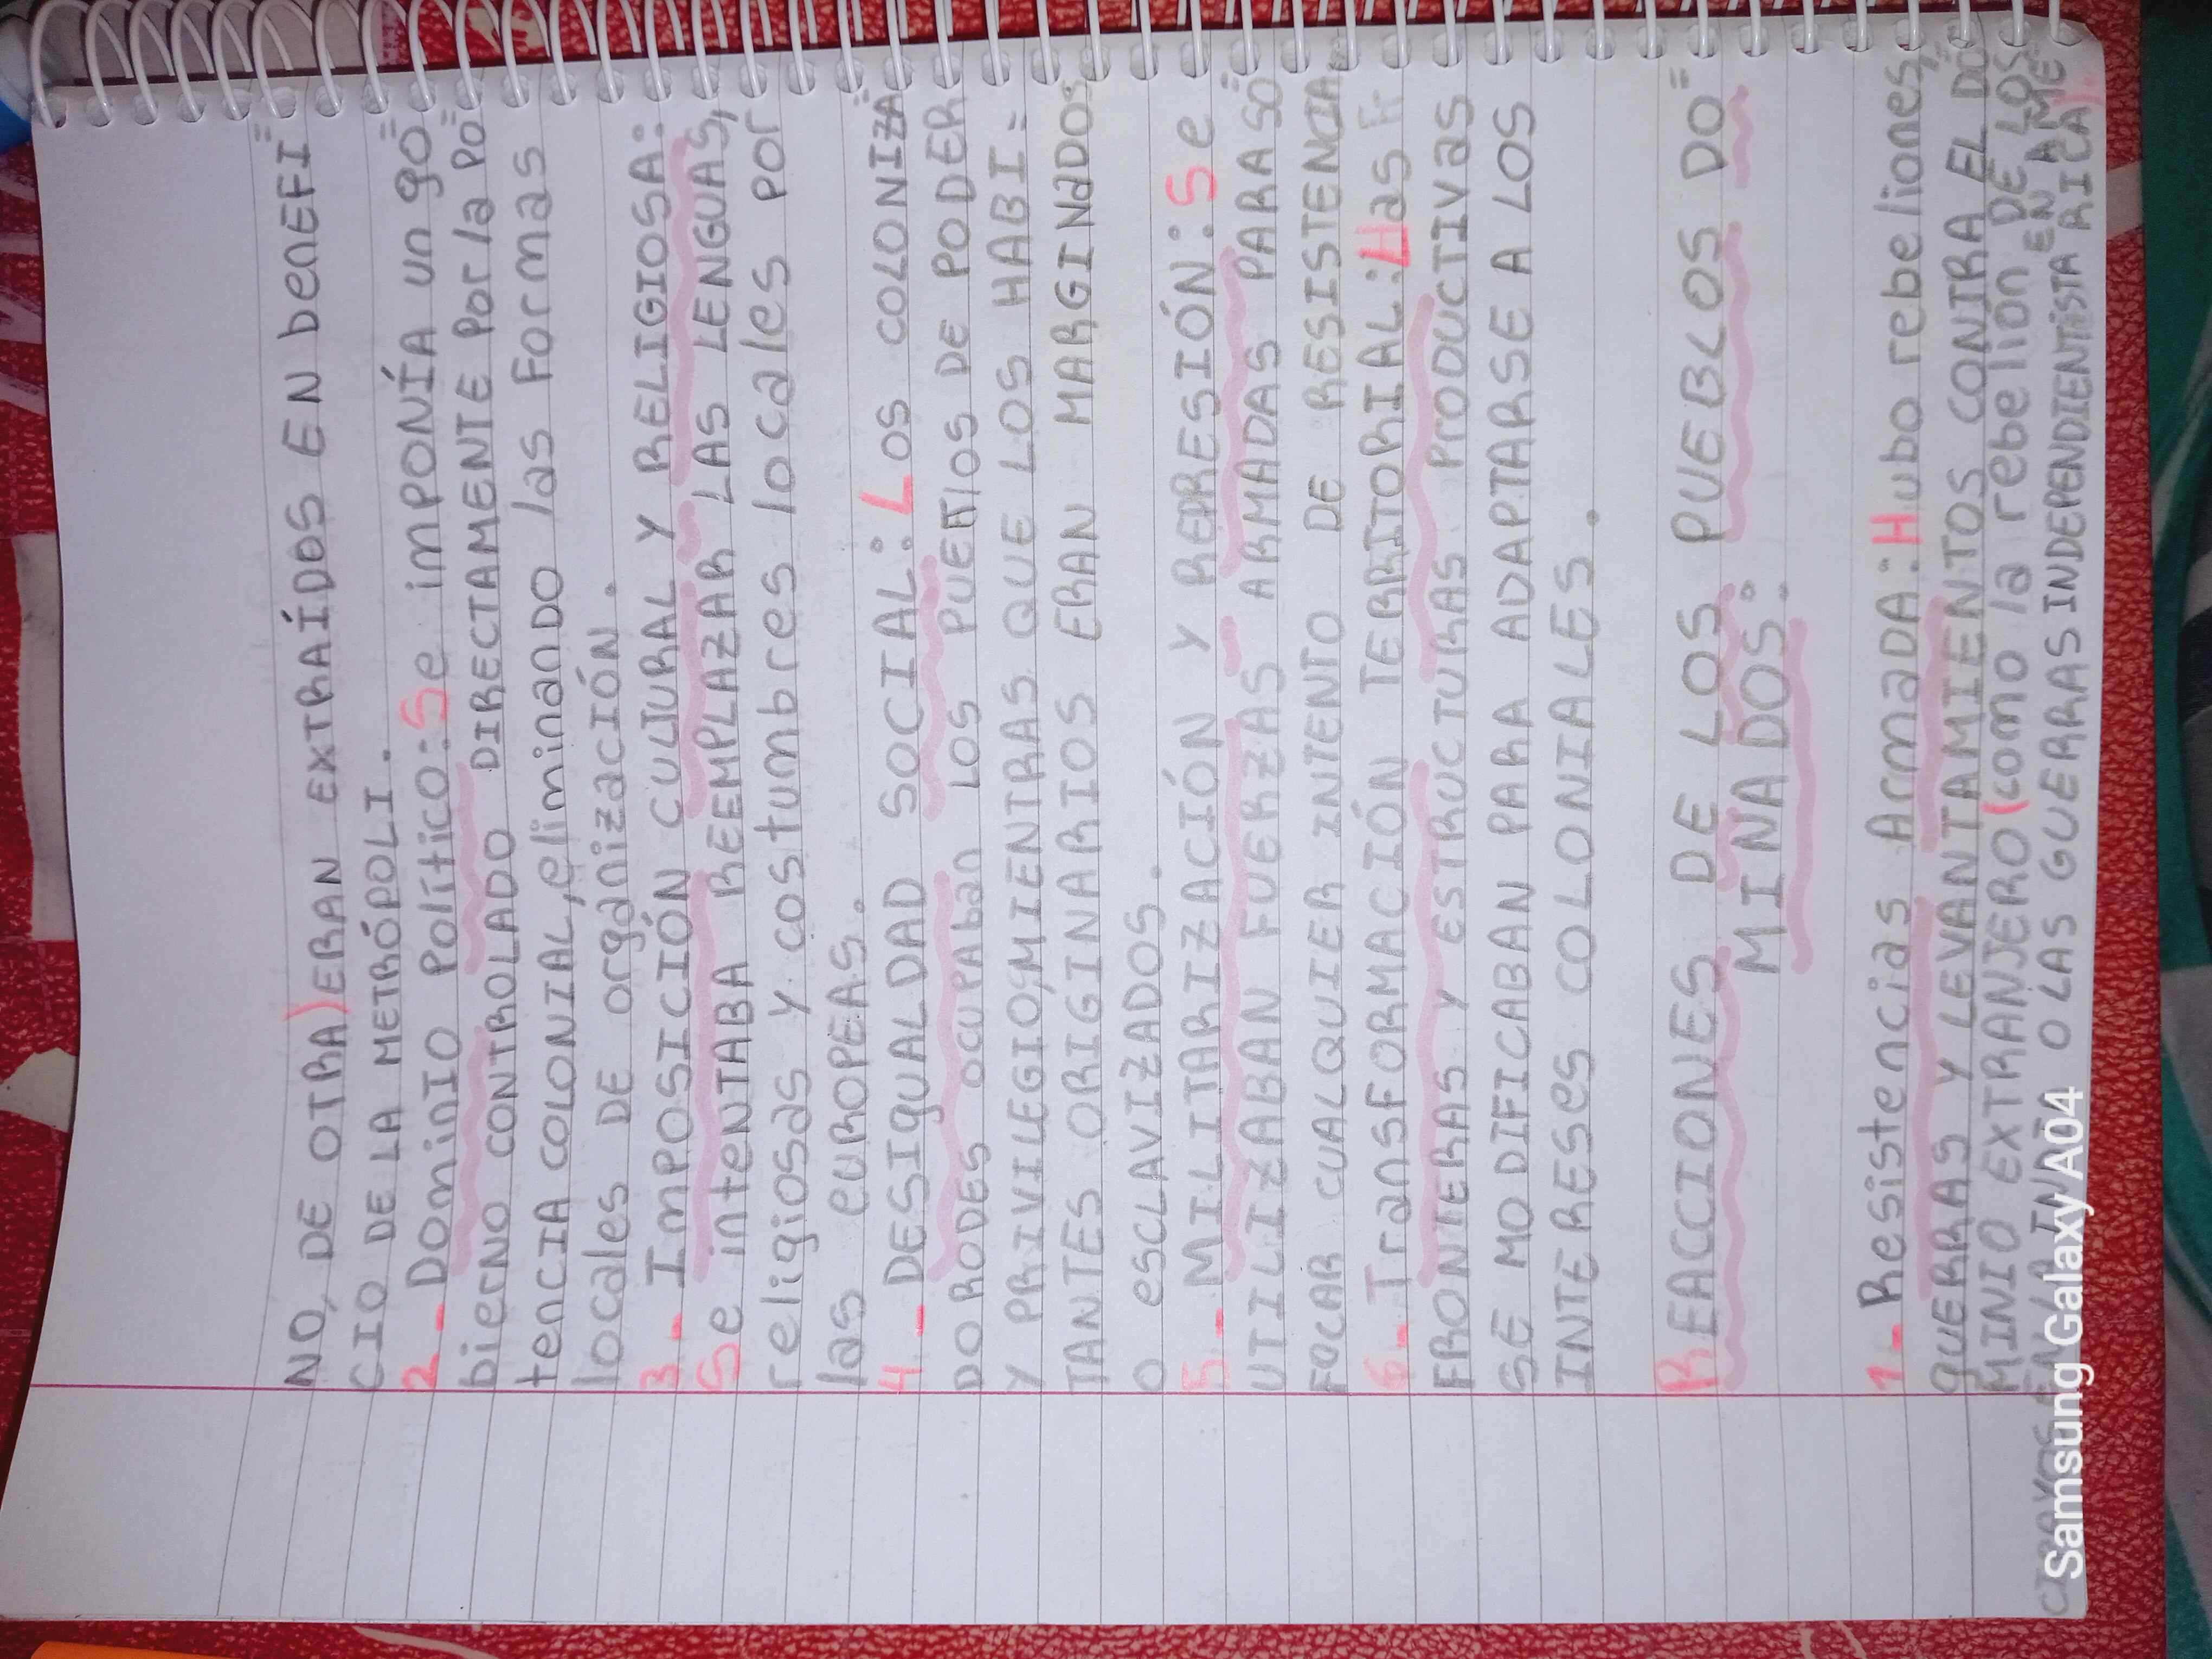 NO, DE OTRA) ERAN EXTRAÍDOS EN beneFI=
CIO DE LA METRÓPOLI.
2- Dominio político: Se imponía un go=
bierno CONTROLADO DIRECTAMENTE Por la Po=
tencia COLONIAL, eliminando las Formas
locales DE organización.
3- IMPOSICIÓN CULTURAL Y RELIGIOSA:
Se intENTABA REEMPLAZAR LAS LENGUAS,
religiosas y costumbres locales por
las europeas.
4- DESIgUALDAD SOCIAL: Los COLONIZA=
DORODES ocupaban LOS PUETIOS DE PODER
Y PRIVILEGIOS, MIENTRAS QUE LOS HABI=
TANTES ORIGINARIOS ERAN MARGINaDOS
O esCLAVIZADOS.
5- MILITARIZACIÓN Y REPRESIÓN: Se
UTILIZABAN FUERZAS ARMADAS PARA SO=
FOCAR CUALQUIER INTENTO DE RESISTENCIA
6- TransFORMACIÓN TERRITORIAL: Has
FRONTERAS Y ESTRUCTURAS PrODUCTIVas
SE MODIFICABAN PARA ADAPTARSE A LOS
INTERESes COLONIALES.
REACCIONES DE LOS PUEBLOS DO=
MINADOS:
1- Resistencias Armada: Hubo rebeliones,
gUERRAS Y LEVANTAMIENTOS CONTRA EL DO=
MINIO EXTRANJERO (como la rebelión DE LOS
CIPAYOS EN LA INDIA O LAS GUERRAS INDEPENDIENTISTA EN AMÉ=
RICA).
Samsung Galaxy A04